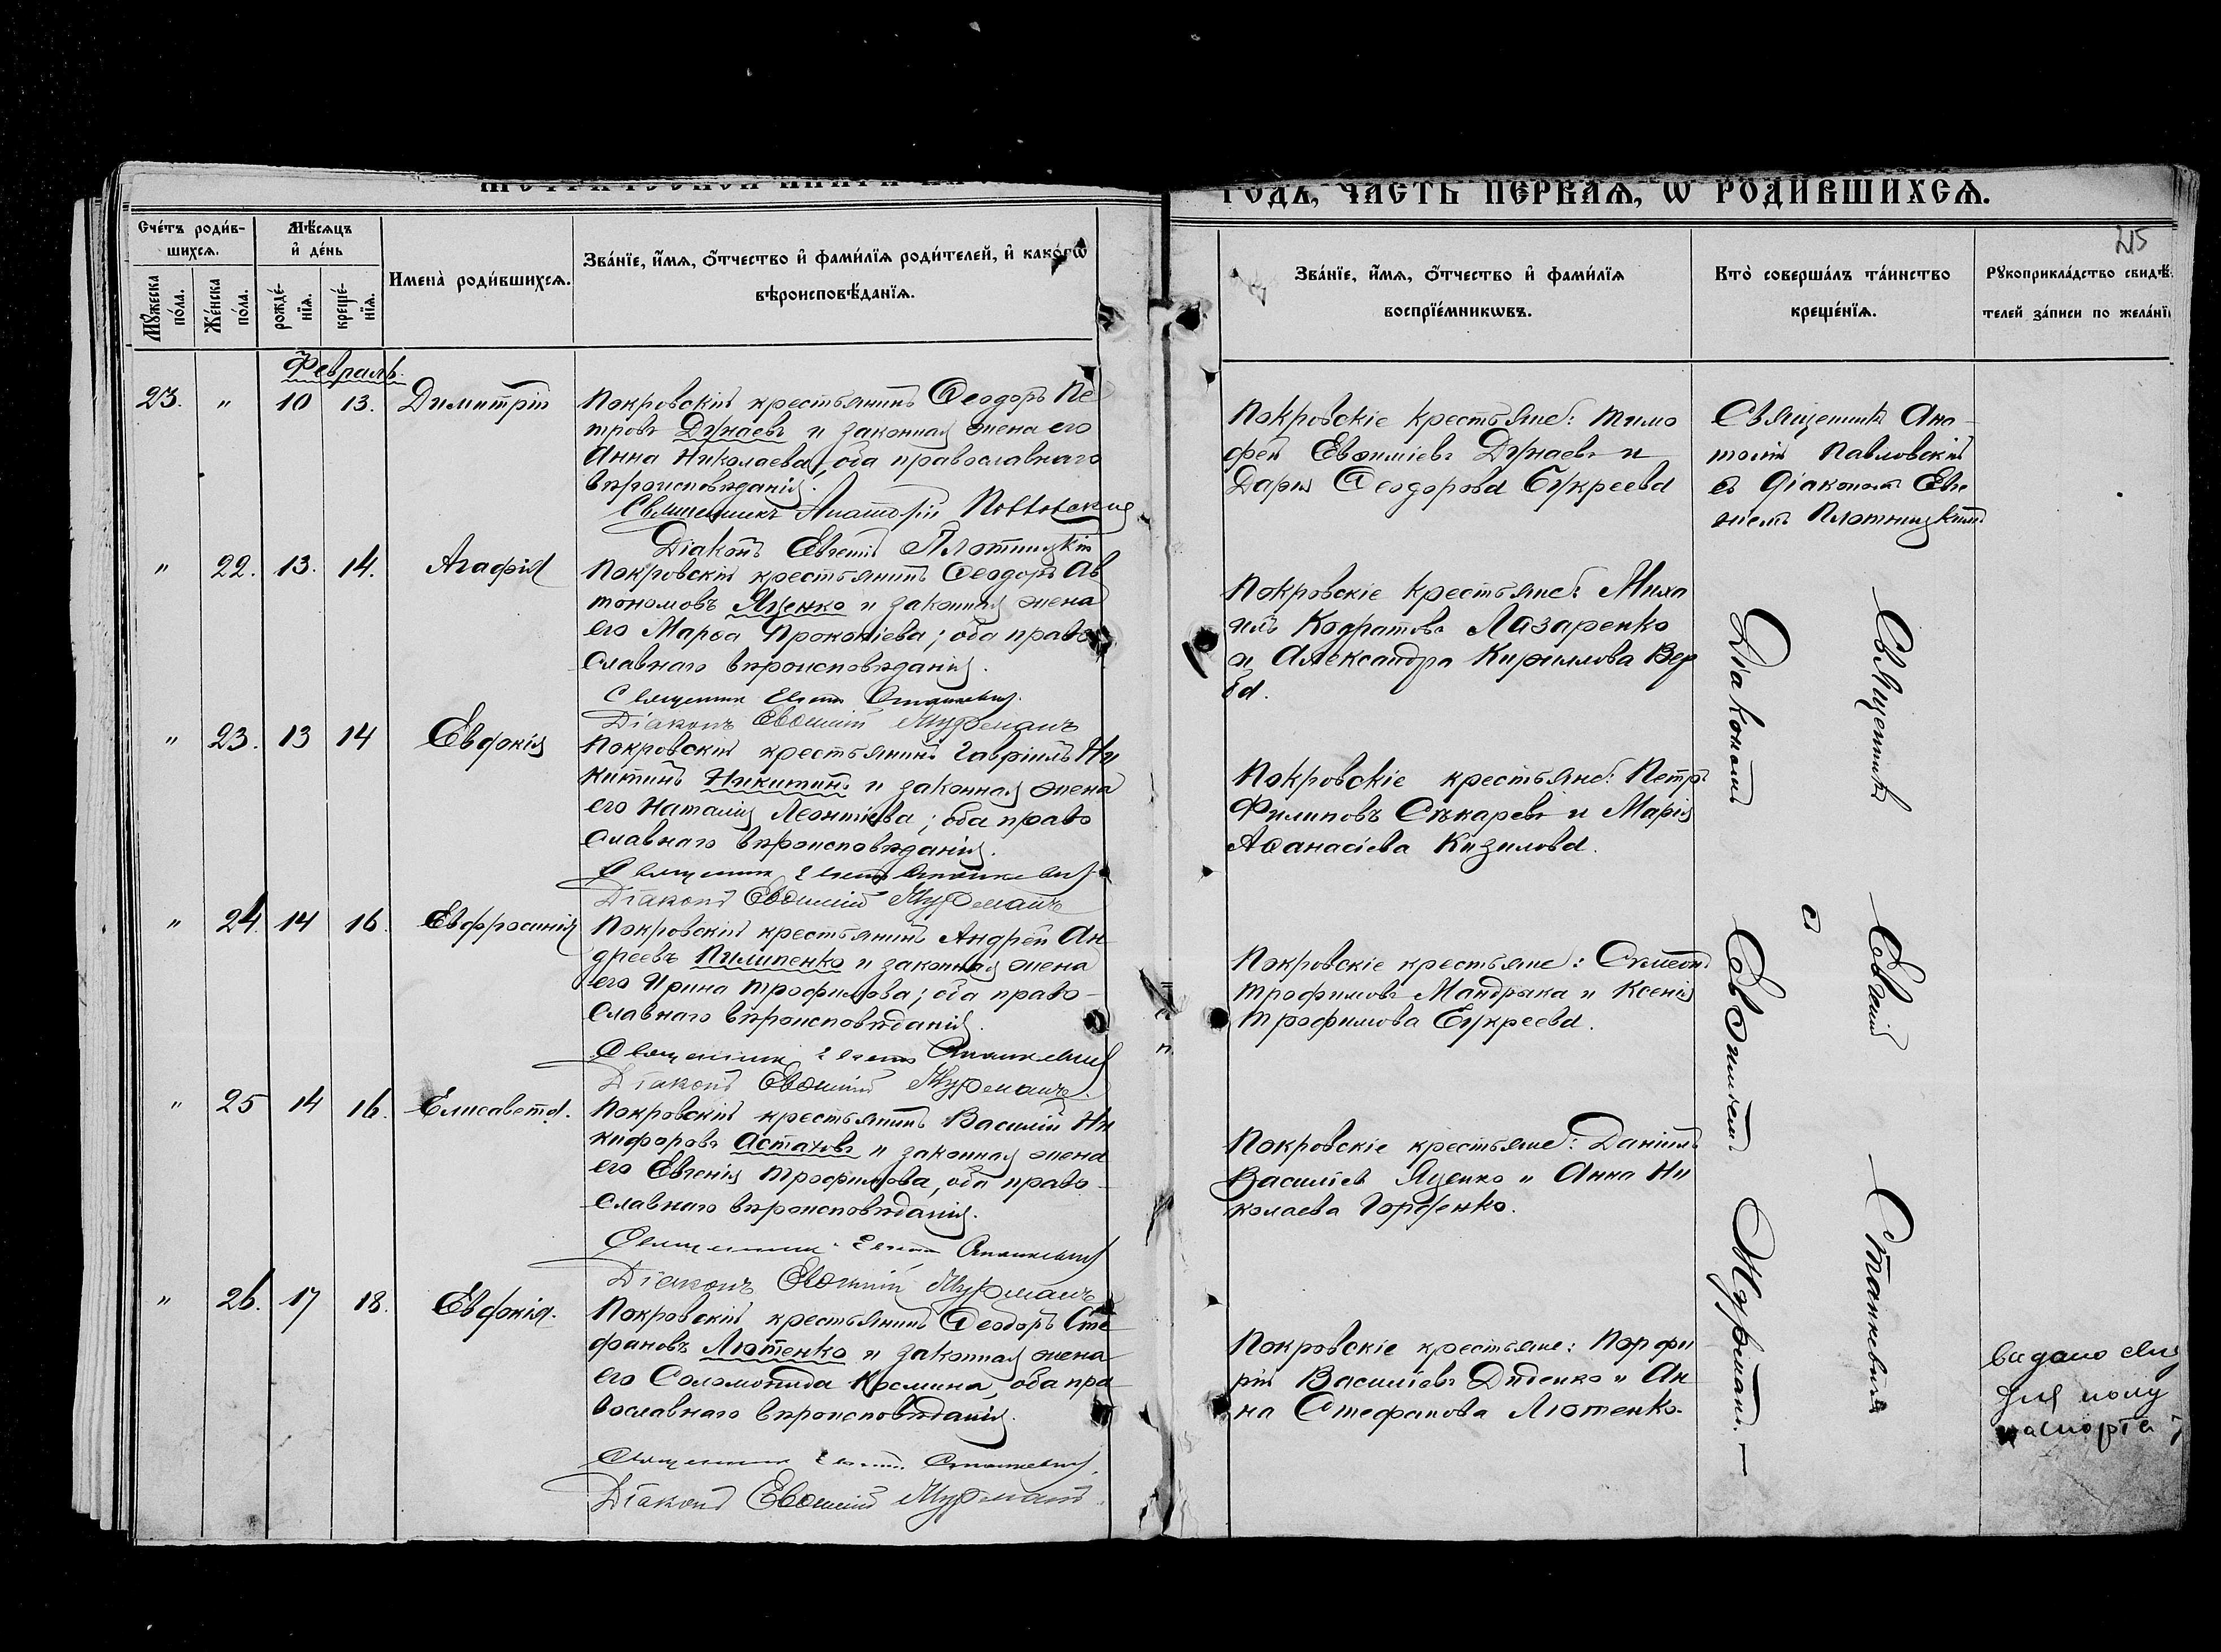 годъ, часть первая, ѡ родившихся.
215
Счетъ родив-
шихся.
Мѣсяцъ
и день
Имена родившихся.
Званїе, имя, отчество и фамилїя родителей, и какогѡ
вѣроисповѣданїя.
Мужеска
пола.
Женска
пола.
рожде-
нїя.
креще-
нїя.
Званїе, имя, отчество и фамилїя
воспрїемникѡвъ.
Кто совершалъ таинство
крещенїя.
Рукоприкладство свидѣ-
телей записи по желанї
Февраль.
23. " 10 13. Димитрій
Покровскій крестьянинъ Ѳеодоръ Пе
тровъ Дунаевъ и законная жена его
Анна Николаева, оба православнаго
вѣроисповѣданія.
Священникъ Анатолій Павловскій
Діаконъ Евгеній Плотницкій
Покровскіе крестьяне: Тимо
фей Евѳиміевъ Дунаевъ и
Дарія Ѳеодорова Букреева
Священникъ Ана-
толій Павловскій
съ Діакономъ Евге
ніемъ Плотницкимъ
" 22. 13. 14. Агафія
Покровскій крестьянинъ Ѳеодоръ Ав
тономовъ Яценко и законная жена
его Марѳа Прокопіева; оба право
славнаго вѣроисповѣданія.
Священникъ Евгеній Станкевичъ
Діаконъ Евѳимій Мурманъ
Покровскіе крестьяне: Миха
илъ Кодратовъ Лазаренко
и Александра Кириллова Вер
ба.
" 23. 13 14 Евдокія
Покровскій крестьянинъ Гавріилъ Ни
китинъ Никитинъ и законная жена
его Наталія Леонтіева; оба право
славнаго вѣроисповѣданія.
Священникъ Евгеній Станкевичъ
Діаконъ Евѳимій Мурманъ
Покровскіе крестьяне: Петръ
Филиповъ Сѣкаревъ и Марія
Аѳанасіева Кизилова.
" 24. 14 16 Евфросинія
Покровскій крестьянинъ Андрей Ан
дреевъ Пилипенко и законная жена
его Ирина Трофимова; оба право-
славнаго вѣроисповѣданія.
Священникъ Евгеній Станкевичъ
Діаконъ Евѳимій Мурманъ.
Покровскіе крестьяне: Симеонъ
Трофимовъ Мандрыка и Ксенія
Трофимова Букреева.
" 25 14 16. Елисавета.
Покровскій крестьянинъ Василій Ни
кифоровъ Астаховъ и законная жена
его Евгенія Трофимова, оба право-
славнаго вѣроисповѣданія.
Священникъ Евгеній Станкевичъ
Діаконъ Евѳимій Мурманъ
Покровскіе крестьяне: Даніилъ
Василіевъ Яценко и Анна Ни
колаева Горбенко.
" 26. 17 18. Евдокія.
Покровскій крестьянинъ Ѳеодоръ Сте
фановъ Лютенко и законная жена
его Соломонида Космина, оба пра
вославнаго вѣроисповѣданія.
Священникъ Евгеній Станкевичъ.
Діаконъ Евѳимій Мурманъ.
Покровскіе крестьяне: Порфи
рій Василіевъ Диденко и Ан
на Стефанова Лютенко.
Священникъ Евгеній Станкевичъ
съ
Діакономъ Евѳиміемъ Мурманъ. —
видано
для полу
паспорта